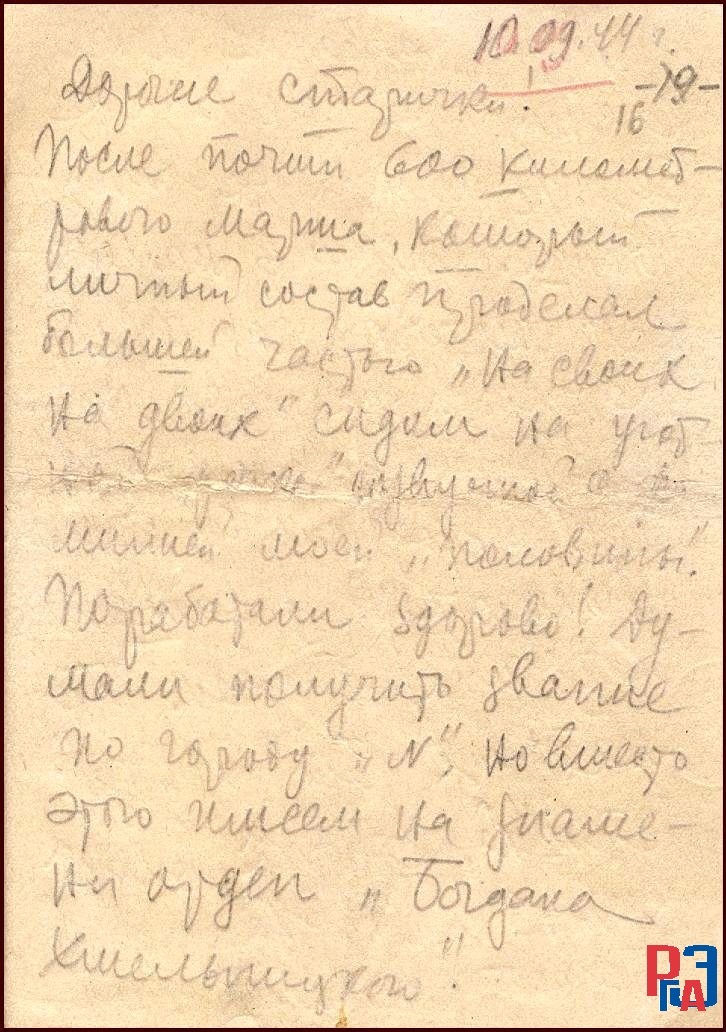 10.09.44 г.
Дорогие старички!
-19-
16
После почти 600 километ-
рового марша, который
личный состав проделал
большей частью „на своих
на двоих" сидим на
созвучной с
милией моей „половины".
Поработали здорово! Ду-
мали получить звание
по городу „N", но вместо
этого имеем на знаме-
ни орден „Богдана
Хмельницкого".
РГАЭ